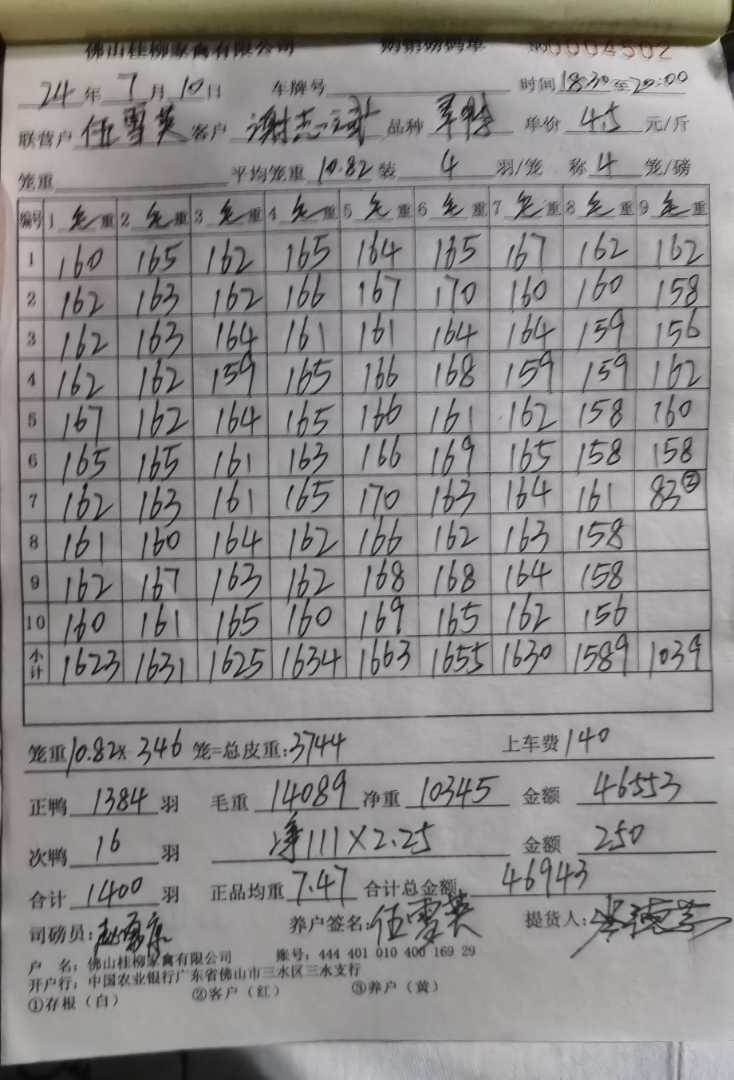 佛山桂柳家禽有限公司 购销磅码单 №0004502
24年 7月 10日 车牌号 时间18:30至20:00
联营户 伍雪英 客户 谢志斌 品种 单价 4.5 元/斤
笼重 平均笼重 10.82 装 4 羽/笼 称 4 笼/磅
编号 1 毛重 2 毛重 3 毛重 4 毛重 5 毛重 6 毛重 7 毛重 8 毛重 9 毛重
1 160 165 162 165 164 165 167 162 162
2 162 163 162 166 167 170 160 160 158
3 162 163 164 161 161 164 164 159 156
4 162 162 159 165 166 168 159 159 162
5 167 162 164 165 166 161 162 158 160
6 165 165 161 163 166 169 165 158 158
7 162 163 161 165 170 163 164 161 83②
8 161 160 164 162 166 162 163 158
9 162 167 163 162 168 168 164 158
10 160 161 165 160 169 165 162 156
小计 1623 1631 1625 1634 1663 1655 1630 1589 1039
笼重10.82× 346 笼=总皮重:3744 上车费140
正鸭 1384 羽 毛重 14089 净重 10345 金额 46553
次鸭 16 羽 净111×2.25 金额 250
合计 1400 羽 正品均重 7.47 合计总金额 46943
司磅员: 养户签名:伍雪英 提货人:
户 名:佛山桂柳家禽有限公司 账号:444 401 010 400 169 29
开户行:中国农业银行广东省佛山市三水区三水支行
①存根(白) ②客户(红) ③养户(黄)